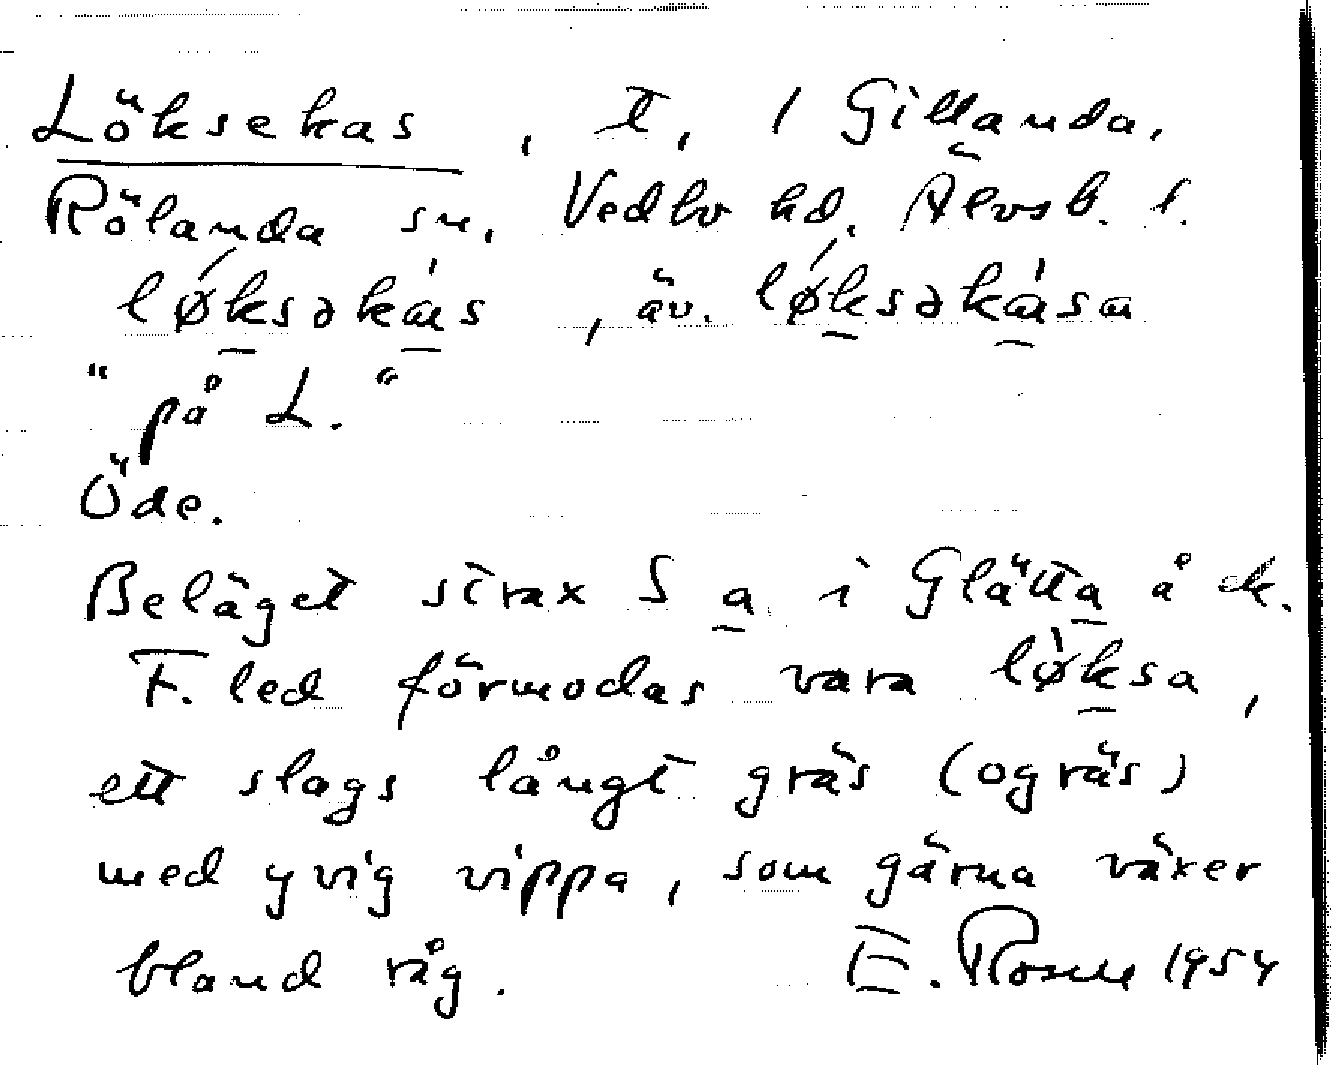 Löksekas, t, / Gillanda,
Rölanda sn, Vedbo hd. Älvsb. l.
løksəkás, äv. løksəkása
"på L."
Öde.
Beläget strax S a i Glätta å ek.
F. led förmodas vara løksa,
ett slags långt gräs (ogräs)
med yvig vippa, som gärna växer
bland råg. E. Rosell 1954